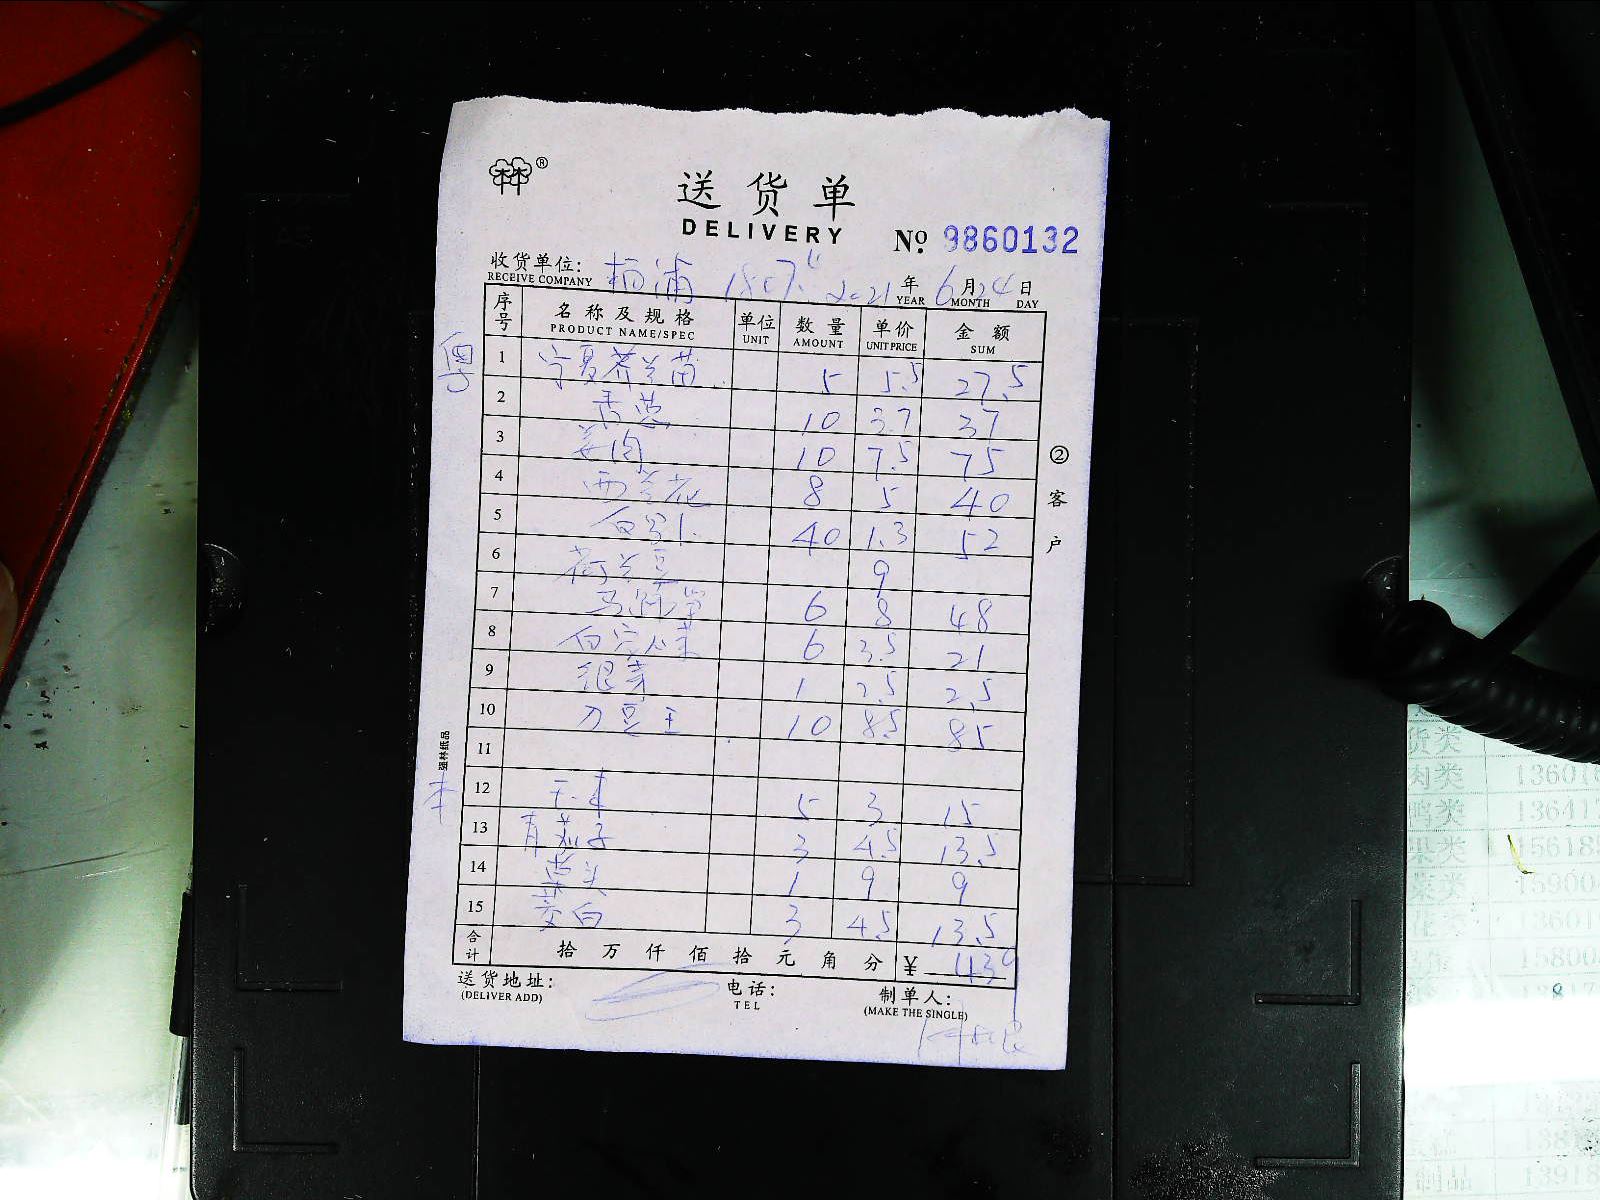 林®
送货单
DELIVERY
No. 9860132
收货单位: 杨浦 1807 2021年6月24日
RECEIVE COMPANY YEAR MONTH DAY
序号 名称及规格 单位 数量 单价 金额
PRODUCT NAME/SPEC UNIT AMOUNT UNIT PRICE SUM
粤
1 宁夏芥兰苗 5 5.5 27.5
2 10 3.7 37
3 姜肉 10 7.5 75
4 西兰花 8 5 40
5 白萝卜 40 1.3 52
6 荷兰豆 9
7 马蹄 6 8 48
8 6 3.5 21
9 银芽 1 2.5 2.5
10 刀豆王 10 8.5 85
11
本
12 5 3 15
13 青茄子 3 4.5 13.5
14 1 9 9
15 茭白 3 4.5 13.5
合计 拾万仟佰拾元角分 ¥ 439
送货地址: 电话: 制单人:
(DELIVER ADD) TEL (MAKE THE SINGLE)
②客户
强林纸品
货类
肉类 1360
鸭类 13641
果类 15618
菜类 1590
1360
1580